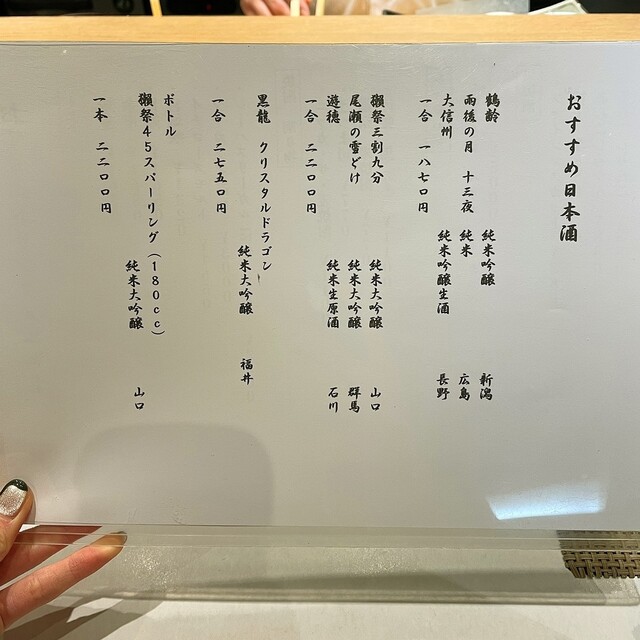 おすすめ日本酒
鶴齢 純米吟醸 新潟
雨後の月 十三夜 純米 広島
大信州 純米吟醸生酒 長野
一合 一八七〇円
獺祭三割九分 純米大吟醸 山口
尾瀬の雪どけ 純米大吟醸 群馬
遊穂 純米生原酒 石川
一合 二二〇〇円
黒龍 クリスタルドラゴン 純米大吟醸 福井
一合 二七五〇円
ボトル
獺祭45スパーリング(180cc) 純米大吟醸 山口
一本 二二〇〇円